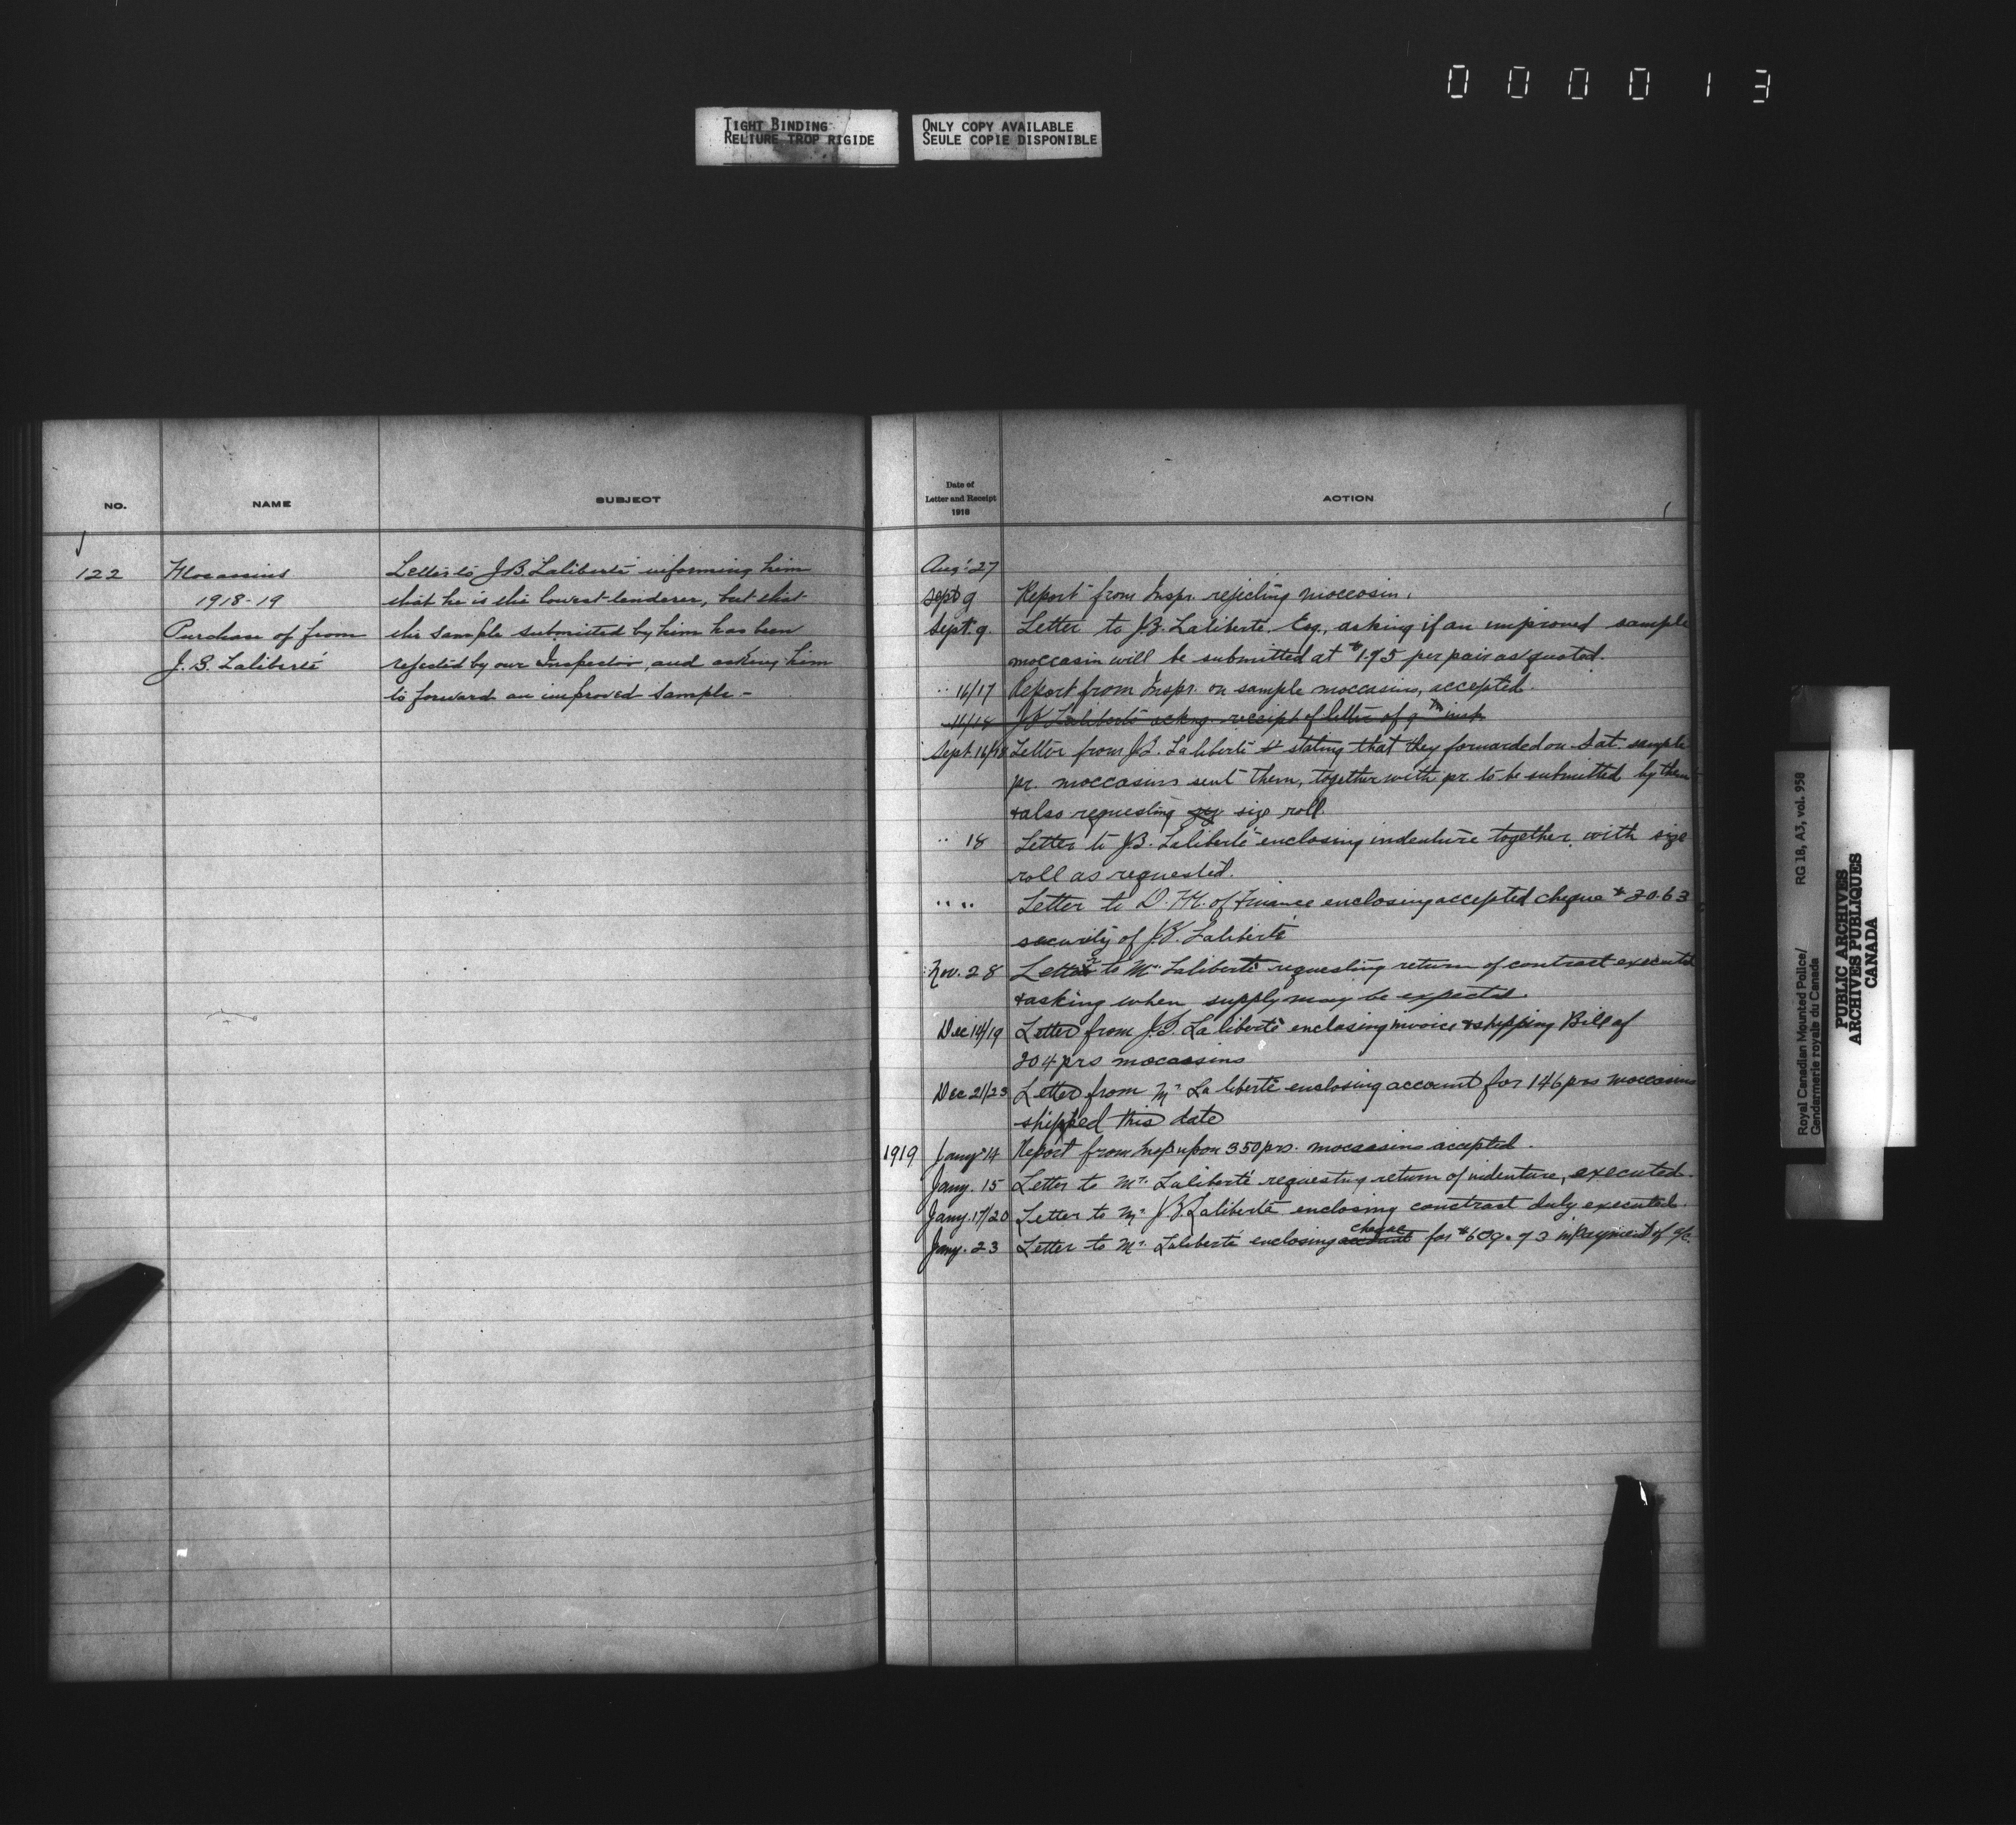 000013
TIGHT BINDING
RELIURE TROP RIGIDE
ONLY COPY AVAILABLE
SEULE COPIE DISPONIBLE
NO.
NAME
SUBJECT
122
Mocassins
1918-19
Purchase of from
J. B. Laliberté
Letter to J.B. Laliberté informing him
that he is the lowest tenderer, but that
the sample submitted by him has been
rejected by our Inspector, and asking him
to forward an improved sample -
Date of
Letter and Receipt
1918
ACTION
Aug. 27
Sept 9 Report from Inspr. rejecting moccosin.
Sept. 9. Letter to J.B. Laliberté. Esq., asking if an improved sample
moccasin will be submitted at $1.75 per pair as quoted.
" 16/17 Report from Inspr. on sample moccasins, accepted.
16/18 J.B. Laliberté ackng. receipt of letter of 9th inst.
Sept. 16/18 Letter from J.B. Laliberté & stating that they forwarded on Sat. sample
pr. moccasins sent them, together with pr. to be submitted by them
& also requesting size roll.
" 18 Letter to J.B. Laliberté enclosing indenture together, with size
roll as requested.
" " Letter to D. M. of Finance enclosing accepted cheque $20.63
security of J.B. Laliberté
Nov. 28 Letter to Mr. Laliberté requesting return of contract executed
& asking when supply may be expected.
Dec 14/19 Letter from J.B. Laliberté enclosing invoice & shipping Bill of
204 prs moccasins
Dec 21/23 Letter from Mr Laliberté enclosing account for 146 prs moccasins
shipped this date
1919 Jany 14 Report from Insp upon 350 prs. moccasins accepted.
Jany. 15 Letter to Mr. Laliberté requesting return of indenture, executed.
Jany. 17/20 Letter to Mr. J.B. Laliberté enclosing conctract duly executed.
Jany. 23 Letter to Mr. Laliberté enclosing account cheque for $609.73 in payment of a/c.
Royal Canadian Mounted Police/
Gendarmerie royale du Canada
RG 18, A3, vol. 958
PUBLIC ARCHIVES
ARCHIVES PUBLIQUES
CANADA